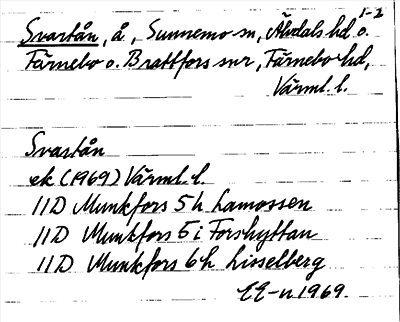 1-2
Svartån, å, Sunnemo sn, Älvdals hd o.
Färnebo o. Brattfors snr, Färnebo hd,
Värml. l.
Svartån
ek (1969) Värml. l.
11D Munkfors 5h Lamossen
11D Munkfors 5i Forshyttan
11D Munkfors 6h Lisselberg
EE-n 1969.